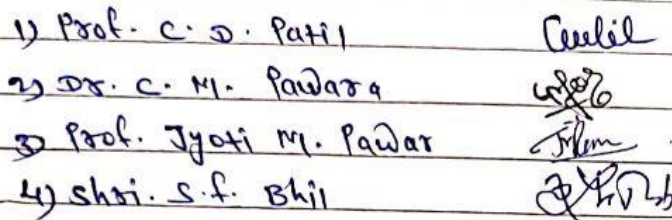 1) Prof. C. D. Patil
2) Dr. C. M. Pawara
3) Prof. Jyoti M. Pawar
4) Shri. S. F. Bhil